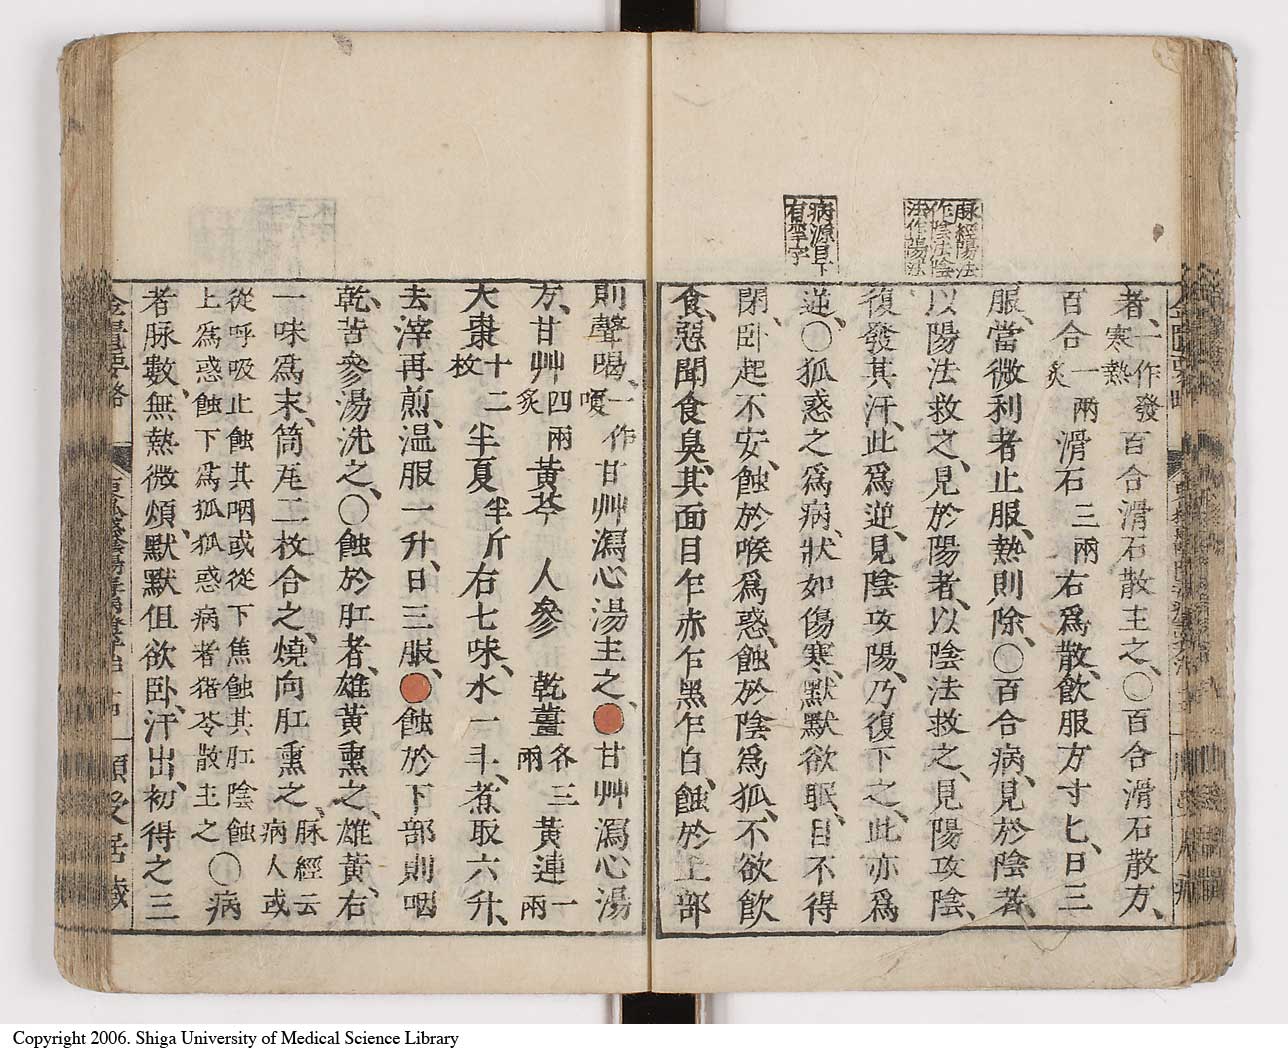 脉經陽法
作陰法陰
法作陽法
病源目下
有瞑字
者、一作發寒熱百合滑石散主之、○百合滑石散方、
百合一兩炙滑石三兩右爲散、飲服方寸匕、日三
服、當微利者止服、熱則除、○百合病、見於陰者、
以陽法救之、見於陽者、以陰法救之、見陽攻陰、
復發其汗、此爲逆、見陰攻陽、乃復下之、此亦爲
逆、○狐惑之爲病、狀如傷寒、默默欲眠、目不得
閉、卧起不安、蝕於喉爲惑、蝕於陰爲狐、不欲飲
食、惡聞食臭、其面目乍赤乍黑乍白、蝕於上部
則聲喝、一作嗄甘艸瀉心湯主之、甘艸瀉心湯
方、甘艸四兩炙黃芩 人參 乾薑各三兩黃連一兩
大棗十二枚半夏半斤右七味、水一斗、煮取六升、
去滓再煎、温服一升、日三服、蝕於下部則咽
乾、苦參湯洗之、○蝕於肛者、雄黃熏之、雄黃、右
一味爲末、筒瓦二枚合之、燒向肛熏之、脉經云病人或
從呼吸上蝕其咽或從下焦蝕其肛陰蝕
上爲惑蝕下爲狐狐惑病者猪苓散主之○病
者脉數、無熱微煩、默默但欲卧、汗出、初得之三
金匱要略
Copyright 2006. Shiga University of Medical Science Library